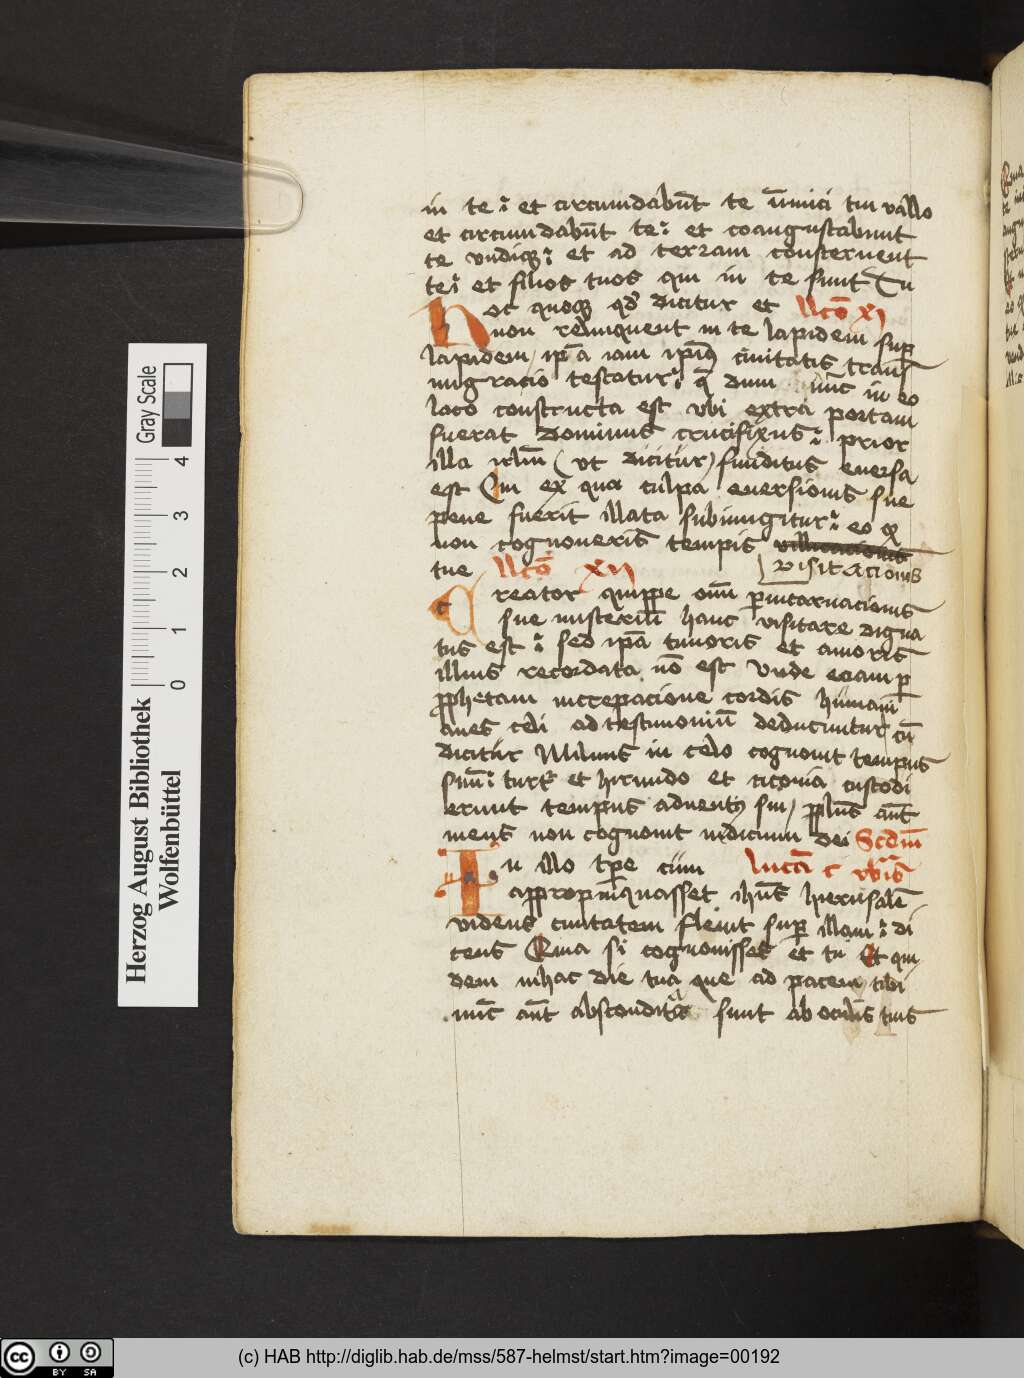 in te : et circumdabūt te inimici tui vallo
et circumdabūt te : et coangustabunt
te vndiqꝫ : et ad terram consternent
te : et filios tuos qui in te sunt Tu
Hoc quoqꝫ qd' dicitur et llcō xj
non relinquent in te lapidem sup
lapidem / ip̄a iam ipiꝰ ciuitatis trans
migracio testatur : q̄ dum nūc in eo
loco constructa est vbi extra portam
fuerat Dominus crucifixus : prior
illa irlm̄ (vt dicitur) funditus euersa
est Cui ex qua culpa euersionis sue
pene fuerit illata subiungitur : eo ꝙ
non cognoueris tempus
visitacionis
tue llcō xij
Creator quippe om̄ı ꝑ incarnacionis
sue misteriū hanc visitare digna
tus est : sed ip̄a timoris et amoris
illius recordata nō est Vnde eciam ꝑ
ꝓphetam increpacione cordis humani
aues celi ad testimoniū deducuntur cū
dicitur Miluus in celo cognouit tempus
suū : turtꝛ et hirundo et ciconia custodi
erunt tempus aduentꝰ sui / pplūs aūt
meus non cognouit iudicium dei Scdm̄
In illo tꝑe cum lucā
appropinquasset ihūs hierusalē
videns ciuitatem fleuit suꝑ illam : di
cens Quia si cognouisses et tu Et qui
dem in hac die tua que ad pacem tibi
nūc aūt abscondita sunt ab oculis tuis
Herzog August Bibliothek
Wolfenbüttel
Gray Scale
0 1 2 3 4
cc BY SA
(c) HAB http://diglib.hab.de/mss/587-helmst/start.htm?image=00192